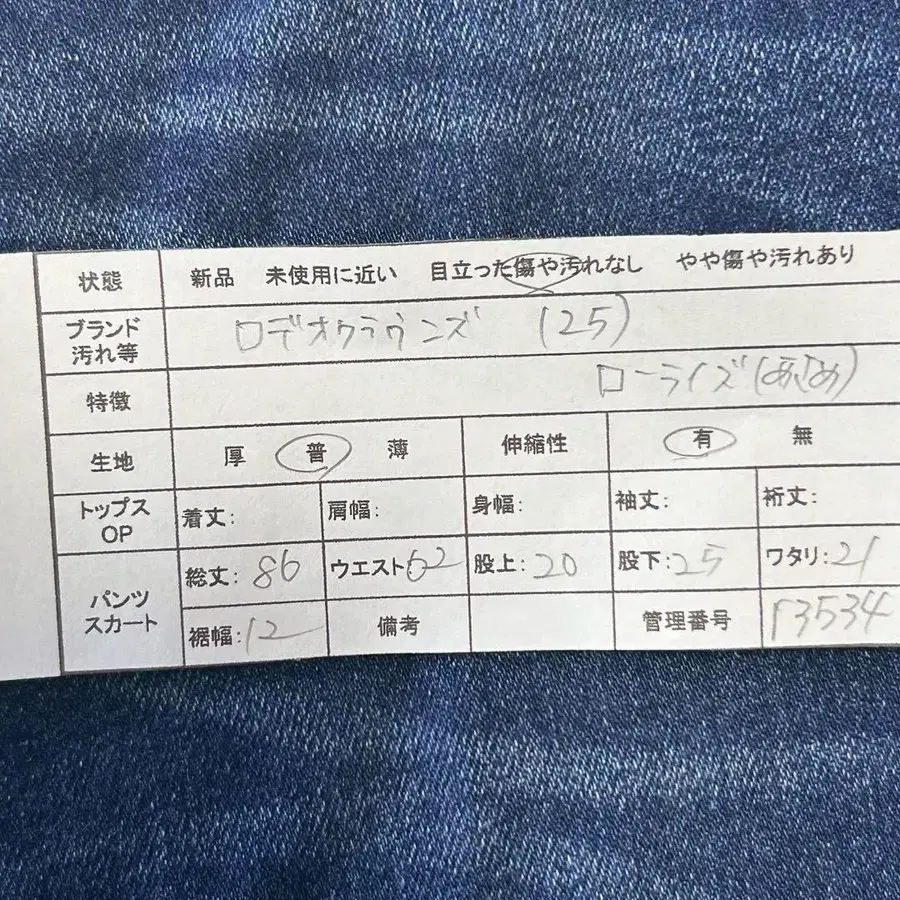 状態 新品 未使用に近い 目立った傷や汚れなし やや傷や汚れあり
ブランド 汚れ等 ロデオクラウンズ (25)
特徴 ローライズ(あさめ)
生地 厚 普 薄 伸縮性 有 無
トップス OP 着丈: 肩幅: 身幅: 袖丈: 裄丈:
パンツ スカート 総丈:86 ウエスト:62 股上:20 股下:25 ワタリ:21
裾幅:12 備考 管理番号 r3534